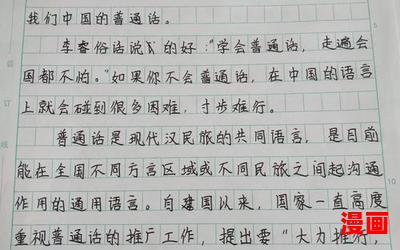 我们中国的普通话。
李睿俗话说的好:“学会普通话,走遍会
国都不怕。”如果你不会普通话,在中国的语言
上就会碰到很多困难,寸步难行。
普通话是现代汉民族的共同语言,是目前
能在全国不同方言区域或不同民族之间起沟通
作用的通用语言。自建国以来,国家一直高度
重视普通话的推广工作,提出要“大力推
漫画
订
线
5
10